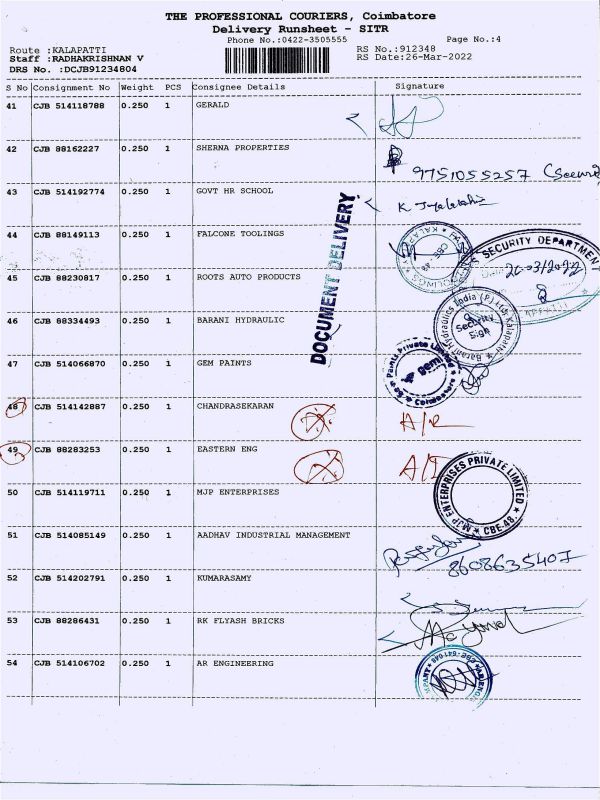 THE PROFESSIONAL COURIERS, Coimbatore
Delivery Runsheet - SITR
Phone No.:0422-3505555
Page No.:4
Route :KALAPATTI
RS No.:912348
Staff :RADHAKRISHNAN V
RS Date:26-Mar-2022
DRS No. :DCJB91234804
S No Consignment No Weight PCS Consignee Details Signature
41 CJB 514118788 0.250 1 GERALD
42 CJB 88162227 0.250 1 SHERNA PROPERTIES
9751055257
43 CJB 514192774 0.250 1 GOVT HR SCHOOL
DOCUMENT DELIVERY
44 CJB 88149113 0.250 1 FALCONE TOOLINGS
SECURITY DEPARTMENT
45 CJB 88230817 0.250 1 ROOTS AUTO PRODUCTS
46 CJB 88334493 0.250 1 BARANI HYDRAULIC
Barani Hydraulics India (P) Ltd, Kalapatti
Security
Sign
47 CJB 514066870 0.250 1 GEM PAINTS
Paints Private Limited
gem
Coimbatore
48 CJB 514142887 0.250 1 CHANDRASEKARAN
A/R
49 CJB 88283253 0.250 1 EASTERN ENG
A/I
50 CJB 514119711 0.250 1 MJP ENTERPRISES
MJP ENTERPRISES PRIVATE LIMITED
CBE-48.
51 CJB 514085149 0.250 1 AADHAV INDUSTRIAL MANAGEMENT
8608635407
52 CJB 514202791 0.250 1 KUMARASAMY
53 CJB 88286431 0.250 1 RK FLYASH BRICKS
54 CJB 514106702 0.250 1 AR ENGINEERING